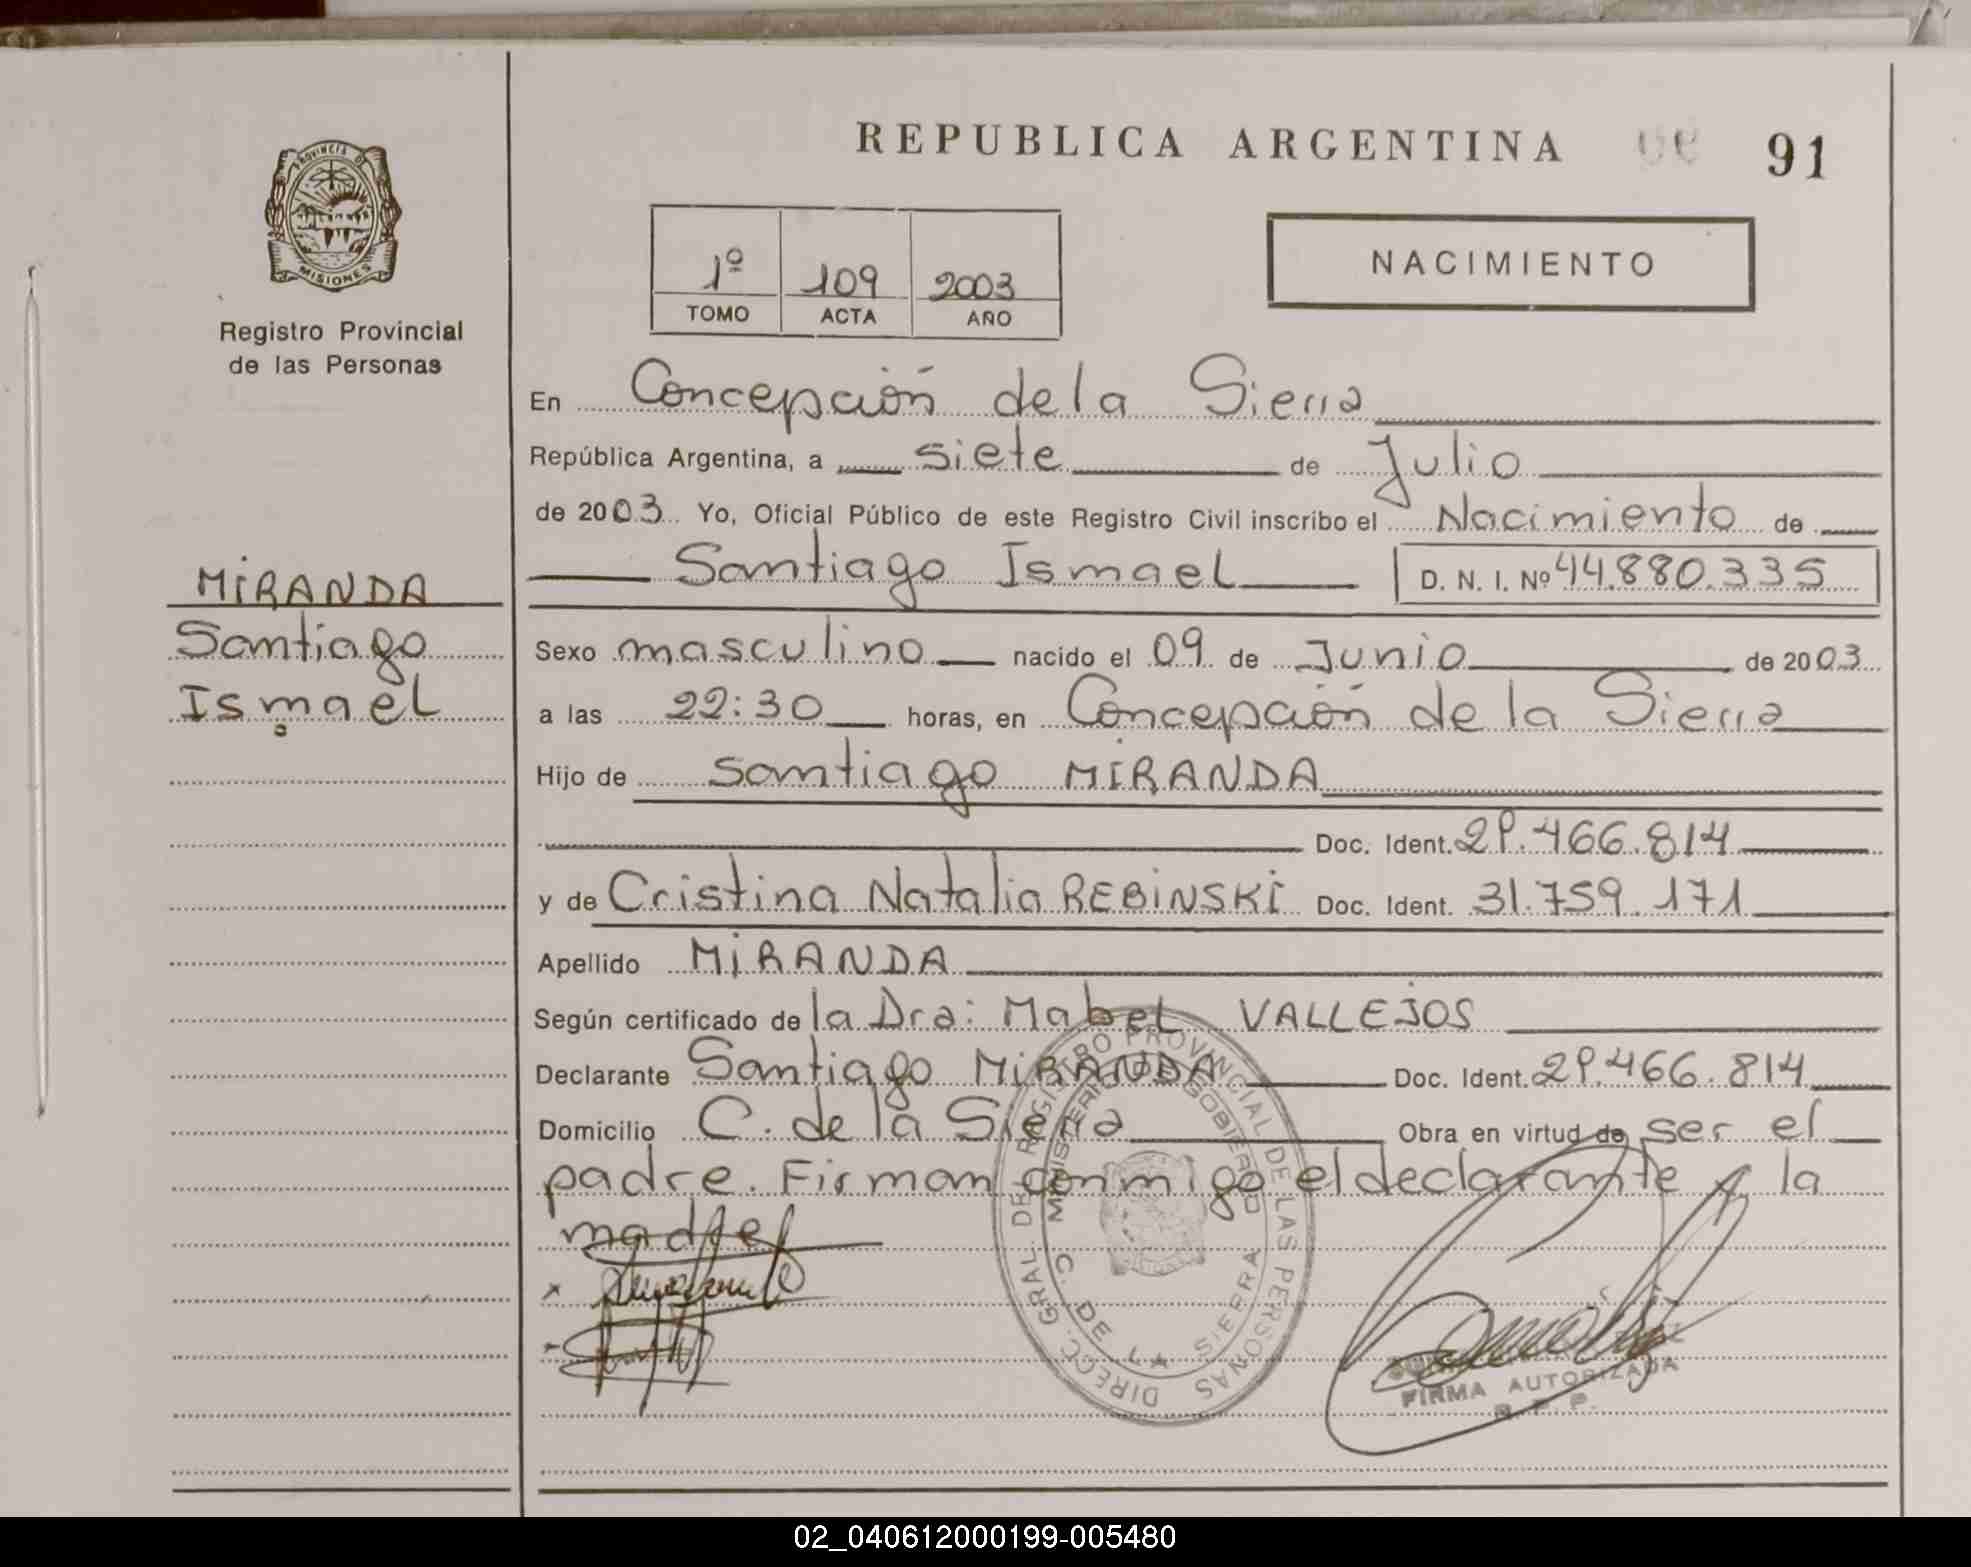 REPUBLICA ARGENTINA 91
PROVINCIA DE
MISIONES
Registro Provincial
de las Personas
1º 109 2003
TOMO ACTA AÑO
NACIMIENTO
En Concepción de la Sierra
República Argentina, a siete de Julio
de 2003 Yo, Oficial Público de este Registro Civil inscribo el Nacimiento de
Santiago Ismael D. N. I. Nº 44.880.335
MIRANDA
Santiago
Ismael
Sexo masculino nacido el 09 de Junio de 2003
a las 22:30 horas, en Concepción de la Sierra
Hijo de Santiago MIRANDA
Doc. Ident. 29.466.814
y de Cristina Natalia REBINSKI Doc. Ident. 31.759.171
Apellido MIRANDA
Según certificado de la Dra: Mabel VALLEJOS
Declarante Santiago MIRANDA Doc. Ident. 29.466.814
Domicilio C. de la Sierra Obra en virtud de ser el
padre. Firman conmigo el declarante y la
madre
DIRECC. GRAL. DEL REGISTRO PROVINCIAL DE LAS PERSONAS
MINISTERIO DE GOBIERNO
C. DE L★ SIERRA
FIRMA AUTORIZADA
R. P. P.
02_040612000199-005480